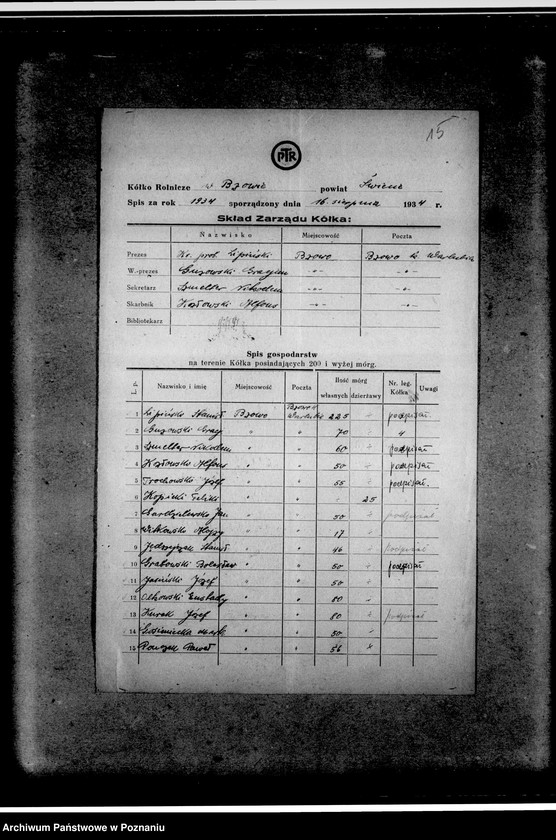 15
PTR
Kółko Rolnicze w Bzowie powiat Świecie
Spis za rok 1934 sporządzony dnia 16 sierpnia 1934 r.
Skład Zarządu Kółka:
Nazwisko Miejscowość Poczta
Prezes Ks. prob. Lipiński Bzowo Bzowo k. Warlubia
W.-prezes Guzowski -"- -"-
Sekretarz Nikodem -"- -"-
Skarbnik Kozłowski Alfons -"- -"-
Bibliotekarz
Spis gospodarstw
na terenie Kółka posiadających 200 i wyżej mórg.
L.p. Nazwisko i imię Miejscowość Poczta Ilość mórg własnych dzierżawy Nr. leg. Kółka Uwagi
1 Lipiński Bzowo Bzowo k. Warlubia 225 podpisał
2 70 "
3 Nikodem " " 60 podpisał
4 Kozłowski Alfons " " 50 podpisał
5 Trochowski Józef " " 55 podpisał
6 Kopicki Feliks " " 25
7 Jan " " 50 podpisał
8 Witkowski Alojzy " " 17
9 " " 46 podpisał
10 Grabowski Bolesław " " 50 podpisał
11 Jasiński Józef " " 50
12 Olszowski Eustachy " " 80
13 Kurek Józef " " 80 podpisał
14 " " 50
15 Paweł " " 56
Archiwum Państwowe w Poznaniu